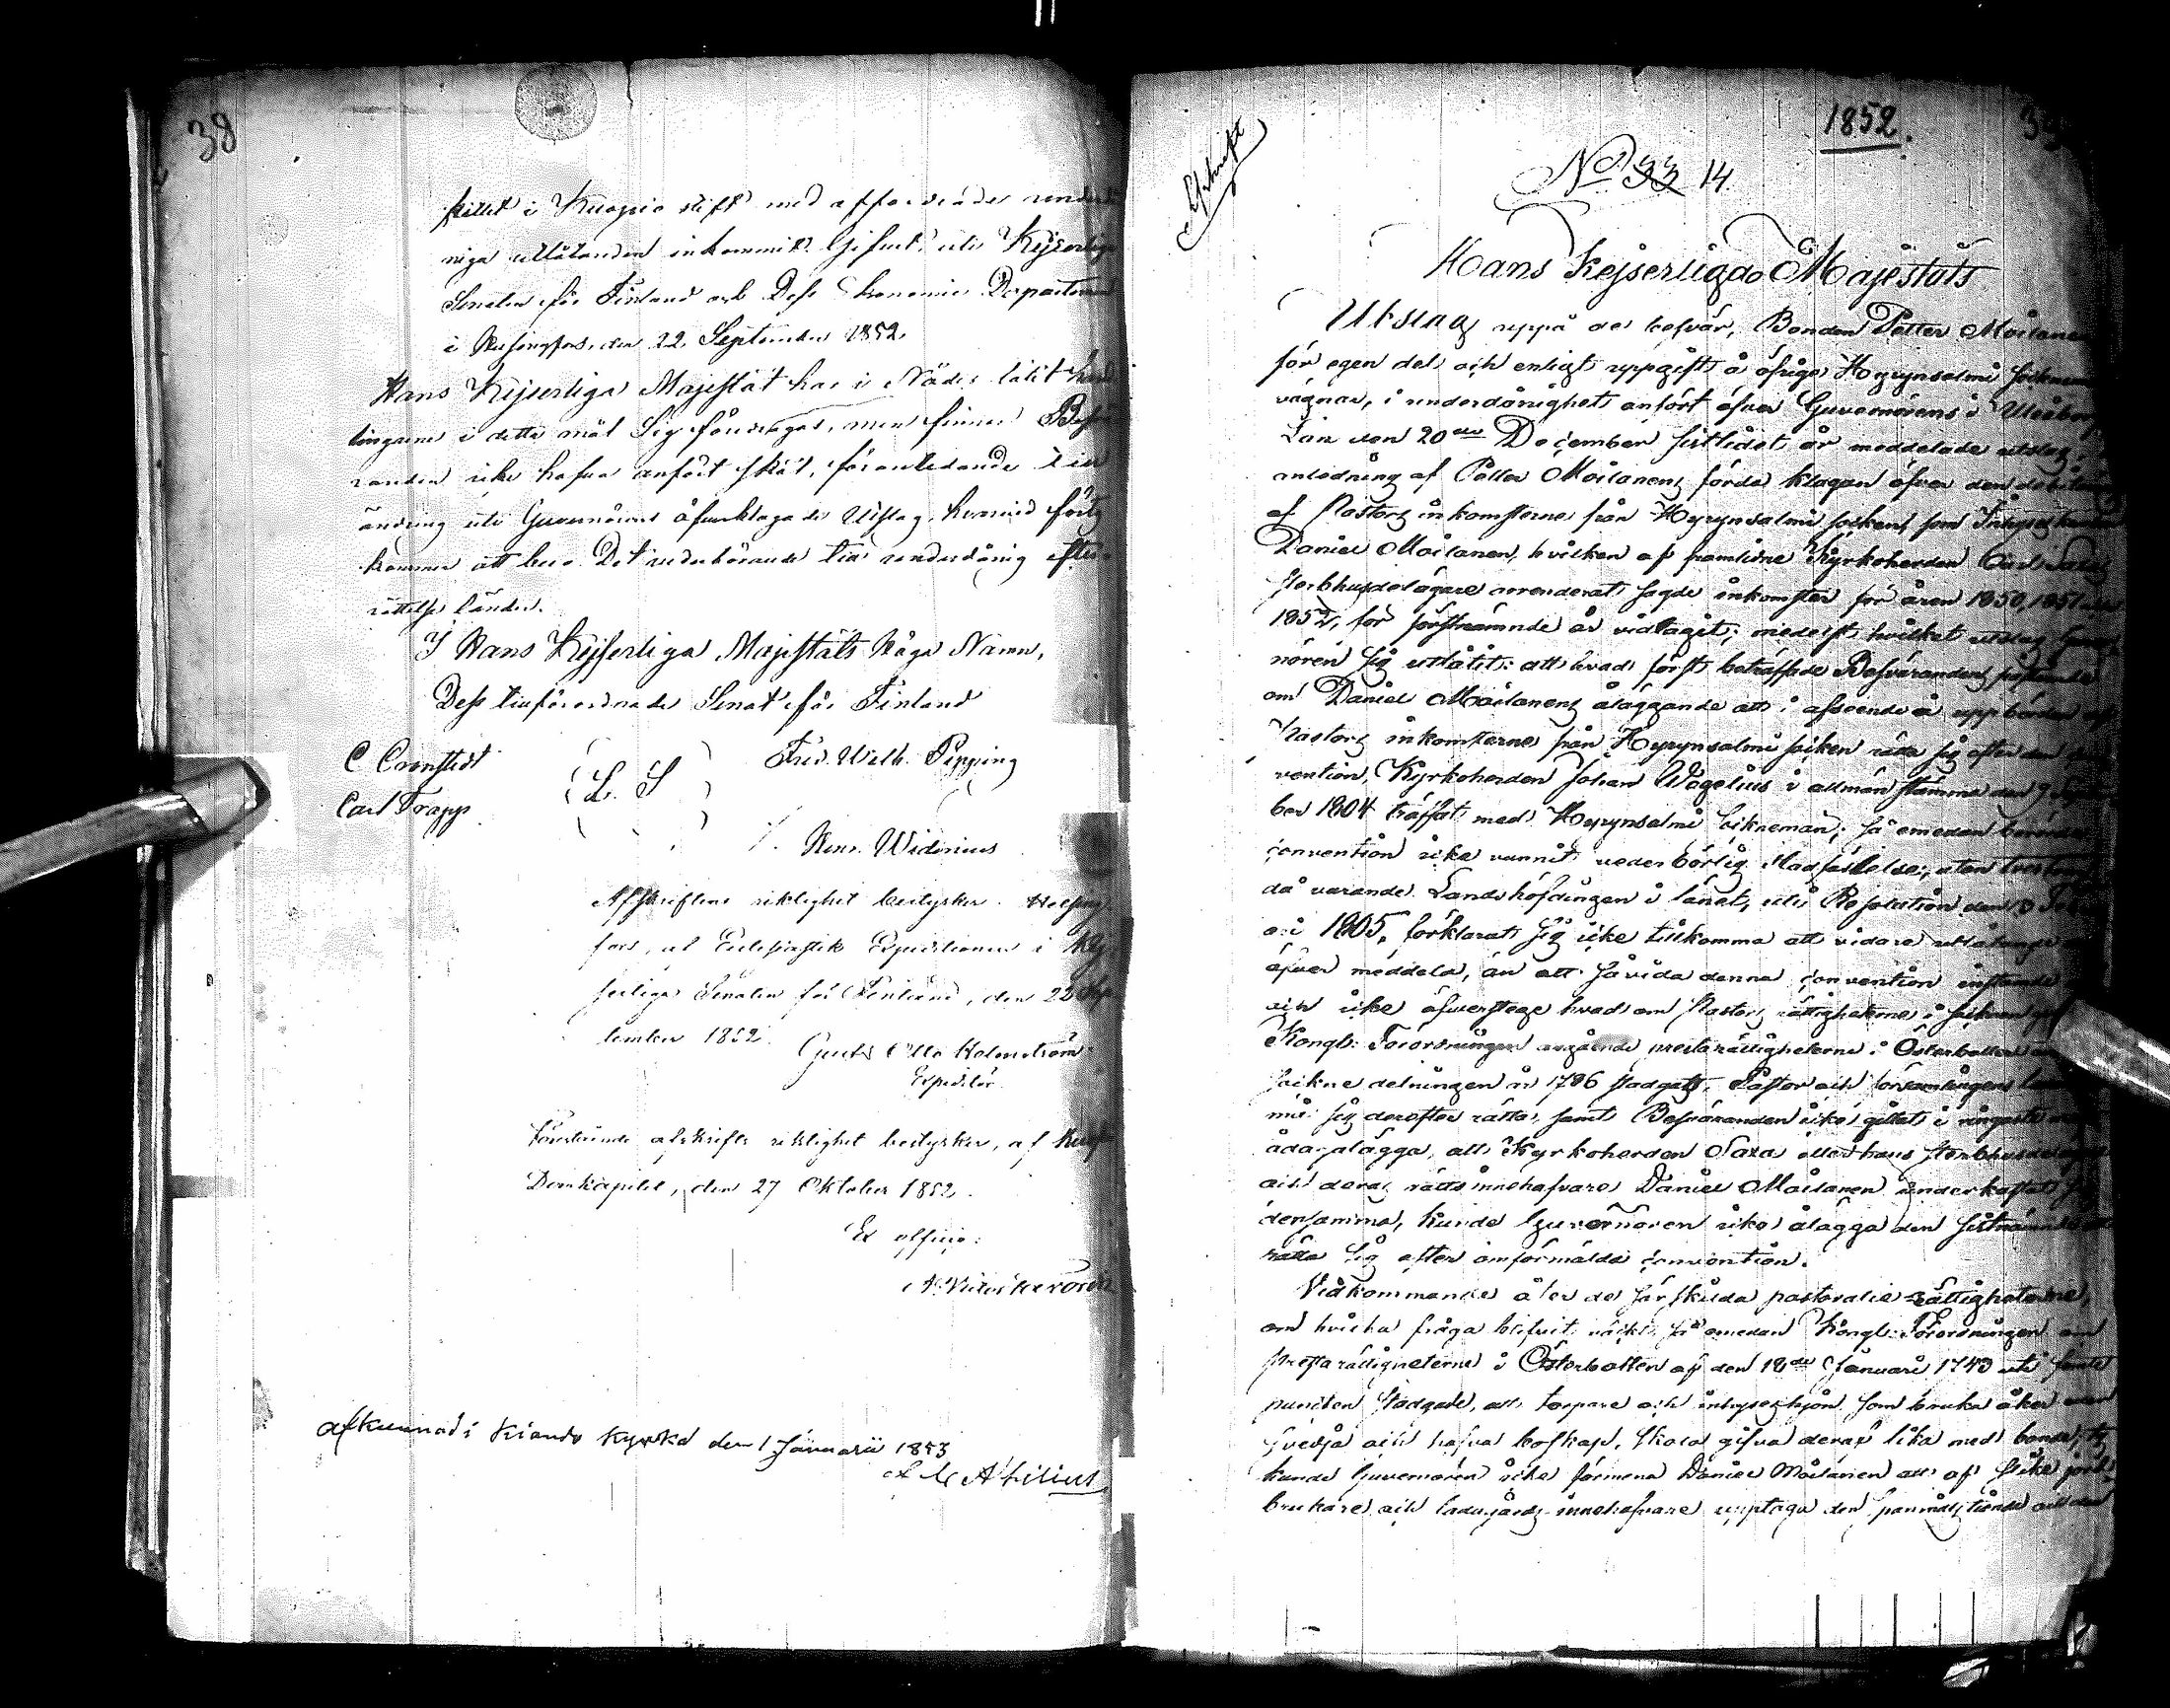 38
pitlet i Kuopio stift med afforderade underdå
niga utlåtanden inkommit. Gifvet uti Kejserliga
Senaten för Finland och Dess Ekonomie Departement
i Helsingfors, den 22 September 1852.
Hans Kejserliga Majestät har i Nåder låtit hand
lingarne i detta mål Sig föredragas, men finner Besvä
randen icke hafva anfört skäl, föranledande till
ändring uti Guvernörens öfverklagade Utslag, hvarvid följ
kommer att bero. Det vederbörande till underdånig efter-
rättelse länder.
I Hans Kejserliga Majestäts Höga Namn,
Dess tillförordnade Senat för Finland
C Cronstedt
Carl Trapp
L. S
Fred. Wilh. Pipping
Henr. Widenius
Afskriftens riktighet bestyrker. Helsing
fors, ut Ecclesiastik Expeditionen i Kej
serliga Senaten för Finland, den 22 Sep
tember 1852.
Otto Holmström
Expeditör.
Förestående afskrifts riktighet bestyrker, af Kuopio
Domkapitel, den 27 Oktober 1852.
Ex officio:
afkunnad i Kianta kyrka den 1 Januarii 1853
1852.
Afskrift
No 33 14.
Hans Kejserliga Majestäts
Utslag uppå de besvär, Bonden Petter Moilanen
för egen del och enligt uppgift å öfriga Hyrynsalmi sockne
vägnar, i underdånighet anfört öfver Guvernörens i Uleåborgs
Län den 20de December sistlidet år meddelade utslag,
anledning af Petter Moilanens förda klagan öfver den
af Pastors inkomsterne från Hyrynsalmi socken, som Inhyses
Daniel Moilanen, hvilken af framlidne Kyrkoherden Carl Saxa
sterbhusdelägare arrenderat sagde inkomster för åren 1850, 1851 och
1852, för förstnämnde år vidtagit; medelst hvilket utslag Guver
nören sig utlåtit: att hvad först beträffade Besvärandens
om Daniel Moilanens åläggande att i afseende å uppbörden af
Pastors inkomsterne från Hyrynsalmi socken rätta sig efter den
vention, Kyrkoherden Johan Wegelius i allmän stämma den 9
ber 1804 träffat med Hyrynsalmi sockneman; så emedan berörde
convention icke vunnit vederbörlig stadfästelse, utan
då varande Landshöfdingen i länet, uti Resolution den
ari 1805, förklarat sig icke tillkomma att vidare utlåtande
öfver meddela, än att såvida denna convention
och icke öfverstege hvad om Pastors rättigheterne i socknen
Kongl. Förordningen angående presterättigheterne i Österbotten
sockne delningen år 1786 stadgats, Pastor och församlingens
må sig derefter rätta, samt Besväranden icke gittat i ringaste
ådagalägga, att Kyrkoherden Saxa eller hans sterbhusdelägare
och deras rätts innehafvare Daniel Moilanen underkastat sig
densamma, kunde Guvernören icke ålägga den sistnämnde
rätta sig efter omförmälda convention.
Vidkommande åter de särskilda pastoralie-rättigheterne,
om hvilka fråga blifvit väckt, så emedan Kongl. Förordningen om
prestarättigheterne i Österbotten af den 18de Januari 1743 uti
punkten stadgade, att torpare och inhyseshjon som bruka åker
svedja och hafva boskap, skola gifva deraf lika med bonde,
kunde Guvernören icke förmena Daniel Moilanen att af slike jord
brukare och ladugårds-innehafvare upptaga den spanmåls tionde och den